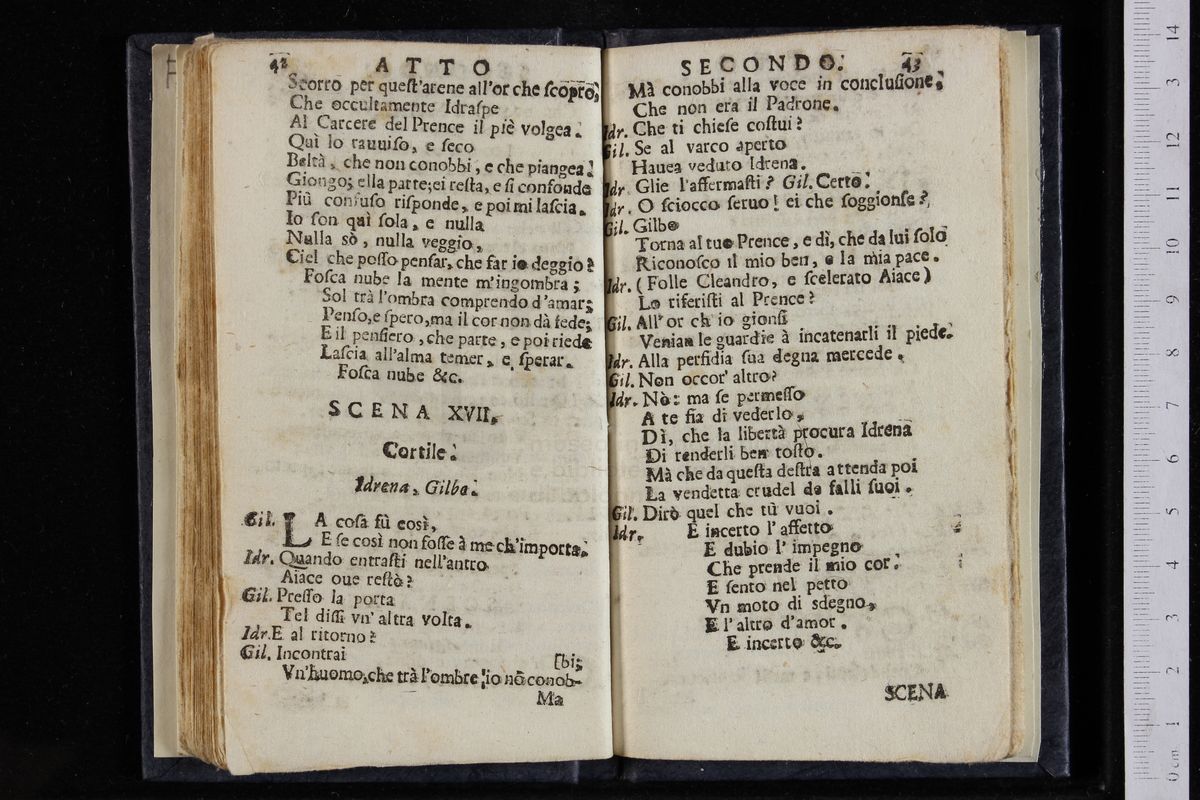 42 ATTO
Scorro per quest'arene all'or che scopro,
Che occultamente Idraspe
Al Carcere del Prence il piè volgea.
Quì lo rauuiso, e seco
Beltà, che non conobbi, e che piangea!
Giongo; ella parte; ei resta, e si confonde
Più confuso risponde, e poi mi lascia.
Io son quì sola, e nulla
Nulla sò, nulla veggio,
Ciel che posso pensar, che far io deggio?
Fosca nube la mente m'ingombra;
Sol trà l'ombra comprendo d'amar;
Penso, e spero, ma il cor non dà fede;
E il pensiero, che parte, e poi riede
Lascia all'alma temer, e sperar.
Fosca nube &c.
SCENA XVII.
Cortile.
Idrena, Gilbo.
Gil. LA cosa fù così,
E se così non fosse à me ch'importa.
Idr. Quando entrasti nell'antro
Aiace oue restò?
Gil. Presso la porta
Tel dissi vn'altra volta.
Idr. E al ritorno?
Gil. Incontrai
[bi;
Vn'huomo, che trà l'ombre, io nō conob-
Ma
SECONDO. 43
Mà conobbi alla voce in conclusione,
Che non era il Padrone.
Idr. Che ti chiese costui?
Gil. Se al varco aperto
Hauea veduto Idrena.
Idr. Glie l'affermasti? Gil. Certo.
Idr. O sciocco seruo! ei che soggionse?
Gil. Gilbo
Torna al tuo Prence, e dì, che da lui solo
Riconosco il mio ben, e la mia pace.
Idr. (Folle Cleandro, e scelerato Aiace)
Lo riferisti al Prence?
Gil. All'or ch'io gionsi
Venian le guardie à incatenarli il piede.
Idr. Alla perfidia sua degna mercede.
Gil. Non occor' altro?
Idr. Nò: ma se permesso
A te fia di vederlo,
Dì, che la libertà procura Idrena
Di renderli ben tosto.
Mà che da questa destra attenda poi
La vendetta crudel de falli suoi.
Gil. Dirò quel che tù vuoi.
Idr. E incerto l'affetto
E dubio l'impegno
Che prende il mio cor.
E sento nel petto
Vn moto di sdegno,
E l'altro d'amor.
E incerto &c.
SCENA